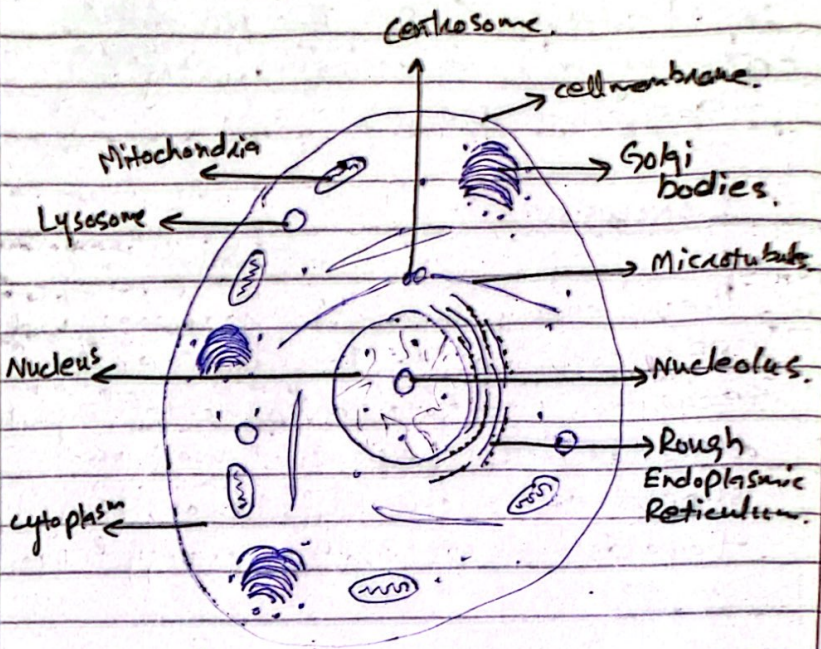 Centrosome.
cell membrane.
Mitochondria
Golgi
bodies.
Lysosome
Microtubuls.
Nucleus
Nucleolus.
Rough
Endoplasmic
Reticulum.
cytoplasm